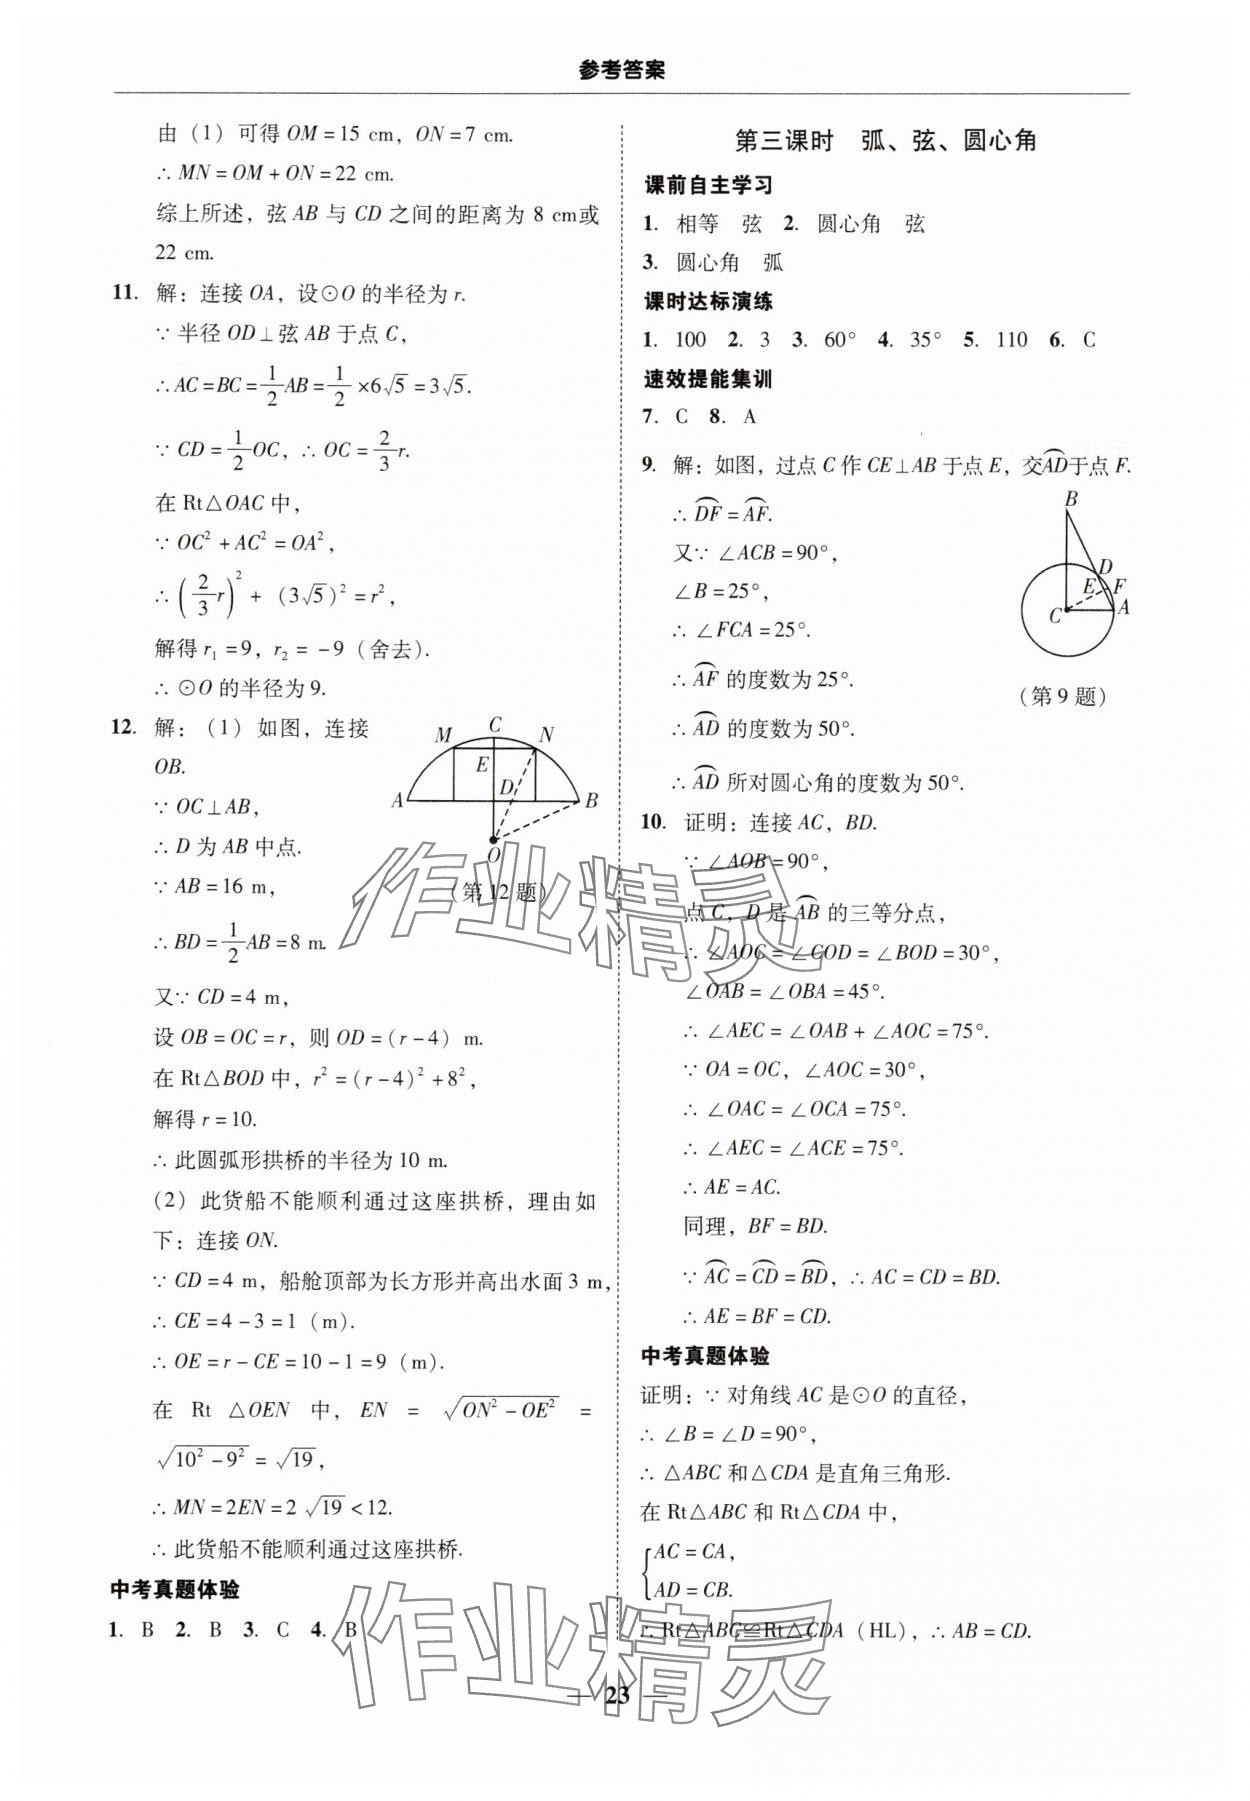 参考答案
由（1）可得 OM = 15 cm，ON = 7 cm.
∴ MN = OM + ON = 22 cm.
综上所述，弦 AB 与 CD 之间的距离为 8 cm或
22 cm.
11. 解：连接 OA，设⊙O 的半径为 r.
∵ 半径 OD⊥弦 AB 于点 C，
∴ AC = BC = 1/2 AB = 1/2 × 6√5 = 3√5.
∵ CD = 1/2 OC，∴ OC = 2/3 r.
在 Rt△OAC 中，
∵ OC² + AC² = OA²，
∴ (2/3 r)² + （3√5）² = r²，
解得 r₁ = 9，r₂ = -9（舍去）.
∴ ⊙O 的半径为 9.
12. 解：（1）如图，连接
OB.
∵ OC⊥AB，
∴ D 为 AB 中点.
∵ AB = 16 m，
∴ BD = 1/2 AB = 8 m.
又∵ CD = 4 m，
设 OB = OC = r，则 OD = (r - 4) m.
在 Rt△BOD 中，r² = (r - 4)² + 8²，
解得 r = 10.
∴ 此圆弧形拱桥的半径为 10 m.
（2）此货船不能顺利通过这座拱桥，理由如
下：连接 ON.
∵ CD = 4 m，船舱顶部为长方形并高出水面 3 m，
∴ CE = 4 - 3 = 1（m）.
∴ OE = r - CE = 10 - 1 = 9（m）.
在 Rt △OEN 中，EN = √(ON² - OE²) =
√(10² - 9²) = √19，
∴ MN = 2EN = 2√19 < 12.
∴ 此货船不能顺利通过这座拱桥.
M C N
E
A D B
O
（第 12 题）
中考真题体验
1. B 2. B 3. C 4. B
第三课时 弧、弦、圆心角
课前自主学习
1. 相等 弦 2. 圆心角 弦
3. 圆心角 弧
课时达标演练
1. 100 2. 3 3. 60° 4. 35° 5. 110 6. C
速效提能集训
7. C 8. A
9. 解：如图，过点 C 作 CE⊥AB 于点 E，交A͡D于点 F.
∴ D͡F = A͡F.
又∵ ∠ACB = 90°，
∠B = 25°，
∴ ∠FCA = 25°.
∴ A͡F 的度数为 25°.
∴ A͡D 的度数为 50°.
∴ A͡D 所对圆心角的度数为 50°.
B
D
E F
C A
（第 9 题）
10. 证明：连接 AC，BD.
∵ ∠AOB = 90°，
点 C，D 是 A͡B 的三等分点，
∴ ∠AOC = ∠COD = ∠BOD = 30°，
∠OAB = ∠OBA = 45°.
∴ ∠AEC = ∠OAB + ∠AOC = 75°.
∵ OA = OC，∠AOC = 30°，
∴ ∠OAC = ∠OCA = 75°.
∴ ∠AEC = ∠ACE = 75°.
∴ AE = AC.
同理，BF = BD.
∵ A͡C = C͡D = B͡D，∴ AC = CD = BD.
∴ AE = BF = CD.
中考真题体验
证明：∵ 对角线 AC 是⊙O 的直径，
∴ ∠B = ∠D = 90°，
∴ △ABC 和△CDA 是直角三角形.
在 Rt△ABC 和 Rt△CDA 中，
{ AC = CA，
AD = CB.
∴ Rt△ABC≌Rt△CDA（HL），∴ AB = CD.
作业精灵
作业精灵
— 23 —